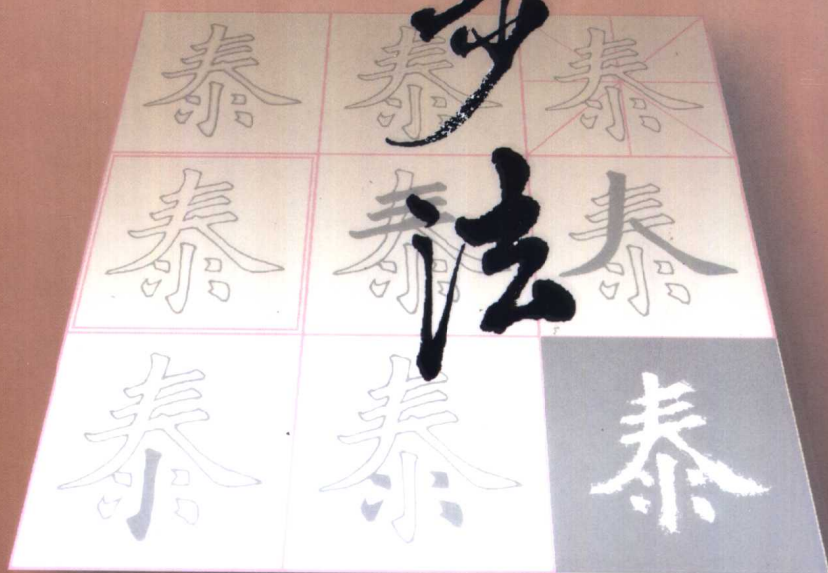 泰泰泰
泰泰泰
泰泰泰
法